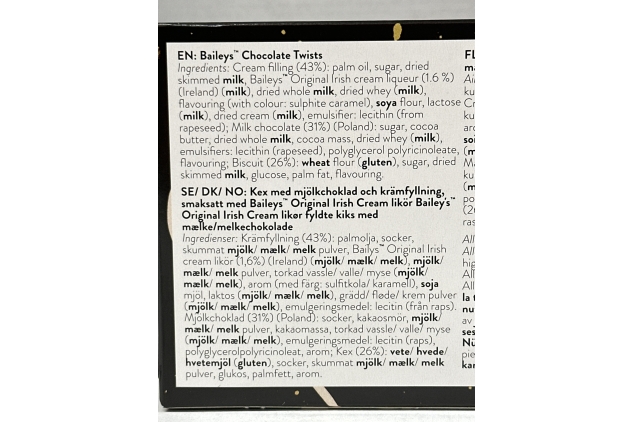 EN: Baileys™ Chocolate Twists
Ingredients: Cream filling (43%): palm oil, sugar, dried
skimmed milk, Baileys™ Original Irish cream liqueur (1.6 %)
(Ireland) (milk), dried whole milk, dried whey (milk),
flavouring (with colour: sulphite caramel), soya flour, lactose
(milk), dried cream (milk), emulsifier: lecithin (from
rapeseed); Milk chocolate (31%) (Poland): sugar, cocoa
butter, dried whole milk, cocoa mass, dried whey (milk),
emulsifiers: lecithin (rapeseed), polyglycerol polyricinoleate,
flavouring; Biscuit (26%): wheat flour (gluten), sugar, dried
skimmed milk, glucose, palm fat, flavouring.
SE/ DK/ NO: Kex med mjölkchoklad och krämfyllning,
smaksatt med Baileys™ Original Irish Cream likör Bailey's™
Original Irish Cream likør fyldte kiks med
mælke/melkechokolade
Ingredienser: Krämfyllning (43%): palmolja, socker,
skummat mjölk/ mælk/ melk pulver, Bailys™ Original Irish
cream likör (1,6%) (Ireland) (mjölk/ mælk/ melk), mjölk/
mælk/ melk pulver, torkad vassle/ valle/ myse (mjölk/
mælk/ melk), arom (med färg: sulfitkola/ karamell), soja
mjöl, laktos (mjölk/ mælk/ melk), grädd/ fløde/ krem pulver
(mjölk/ mælk/ melk), emulgeringsmedel: lecitin (från raps).
Mjölkchoklad (31%) (Poland): socker, kakaosmör, mjölk/
mælk/ melk pulver, kakaomassa, torkad vassle/ valle/ myse
(mjölk/ mælk/ melk), emulgeringsmedel: lecitin (raps),
polyglycerolpolyricinoleat, arom; Kex (26%): vete/ hvede/
hvetemjöl (gluten), socker, skummat mjölk/ mælk/ melk
pulver, glukos, palmfett, arom.